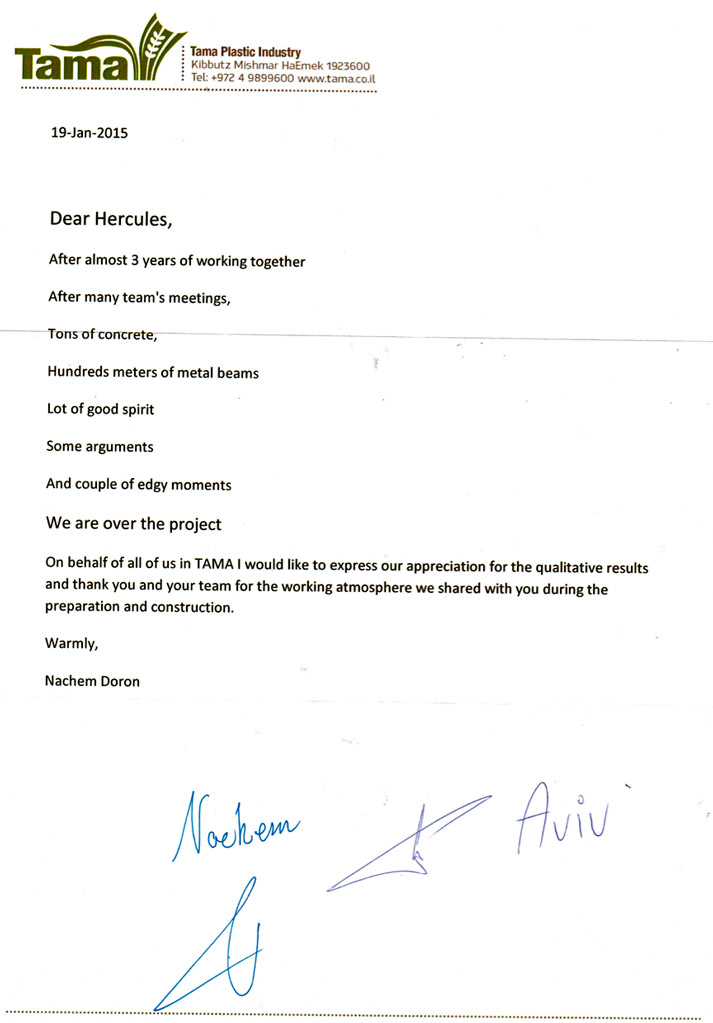 Tama
Tama Plastic Industry
Kibbutz Mishmar HaEmek 1923600
Tel: +972 4 9899600 www.tama.co.il
19-Jan-2015
Dear Hercules,
After almost 3 years of working together
After many team's meetings,
Tons of concrete,
Hundreds meters of metal beams
Lot of good spirit
Some arguments
And couple of edgy moments
We are over the project
On behalf of all of us in TAMA I would like to express our appreciation for the qualitative results
and thank you and your team for the working atmosphere we shared with you during the
preparation and construction.
Warmly,
Nachem Doron
Nachem
Aviv